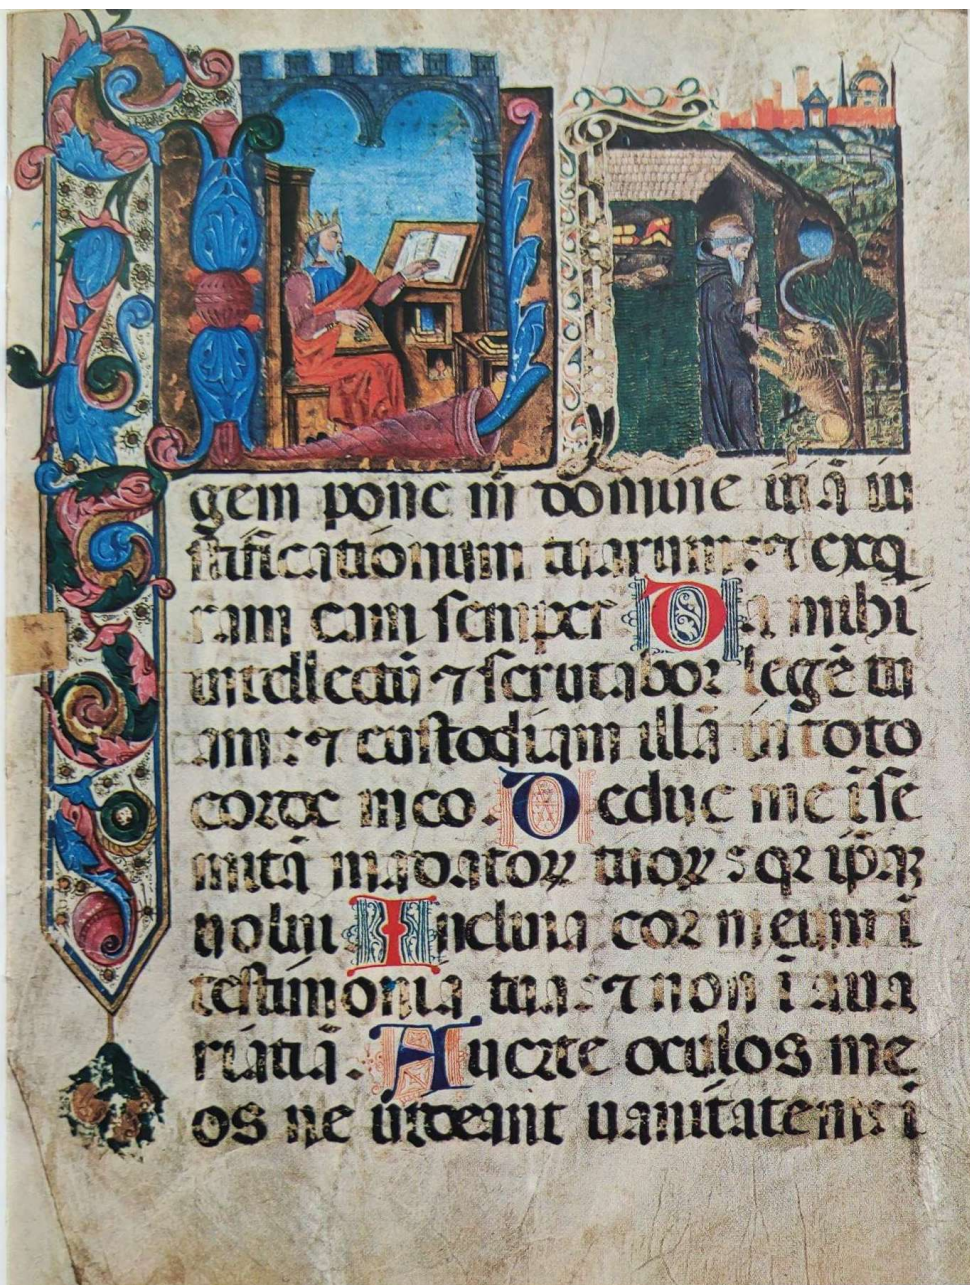 L
gem pone m̄ dōmine uiā iu
stificationum tuarum: ⁊ exq̄
ram eam semper Da mihi
intellectū ⁊ scrutabor legē tu
am: ⁊ custodiam illā in toto
corde meo. Deduc me ī se
mitā mādatoꝝ tuoꝝ: qꝛ ip̄aꝫ
uolui Inclina cor meum ī
testimonia tua: ⁊ non ī aua
ritiā. Auerte oculos me
os ne uideant uanitatem: ī